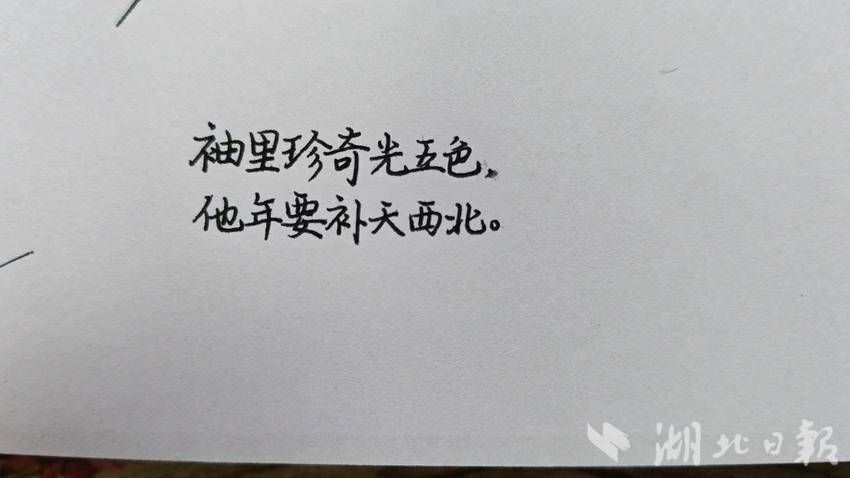 袖里珍奇光五色，
他年要补天西北。
湖北日報